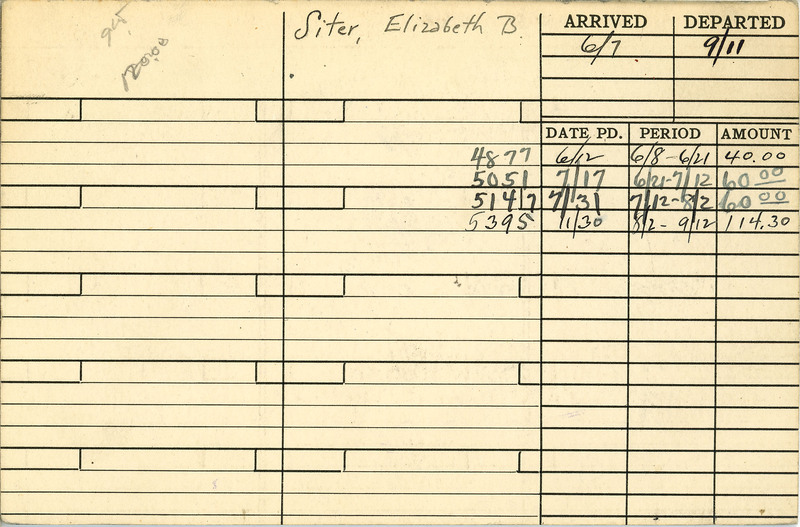 Siter, Elizabeth B.
ARRIVED DEPARTED
6/7 9/11
DATE PD. PERIOD AMOUNT
4877 6/12 6/8-6/21 40.00
5051 7/17 6/21-7/12 60.00
5147 7/31 7/12-8/2 60.00
5395 11/30 8/2-9/12 114.30